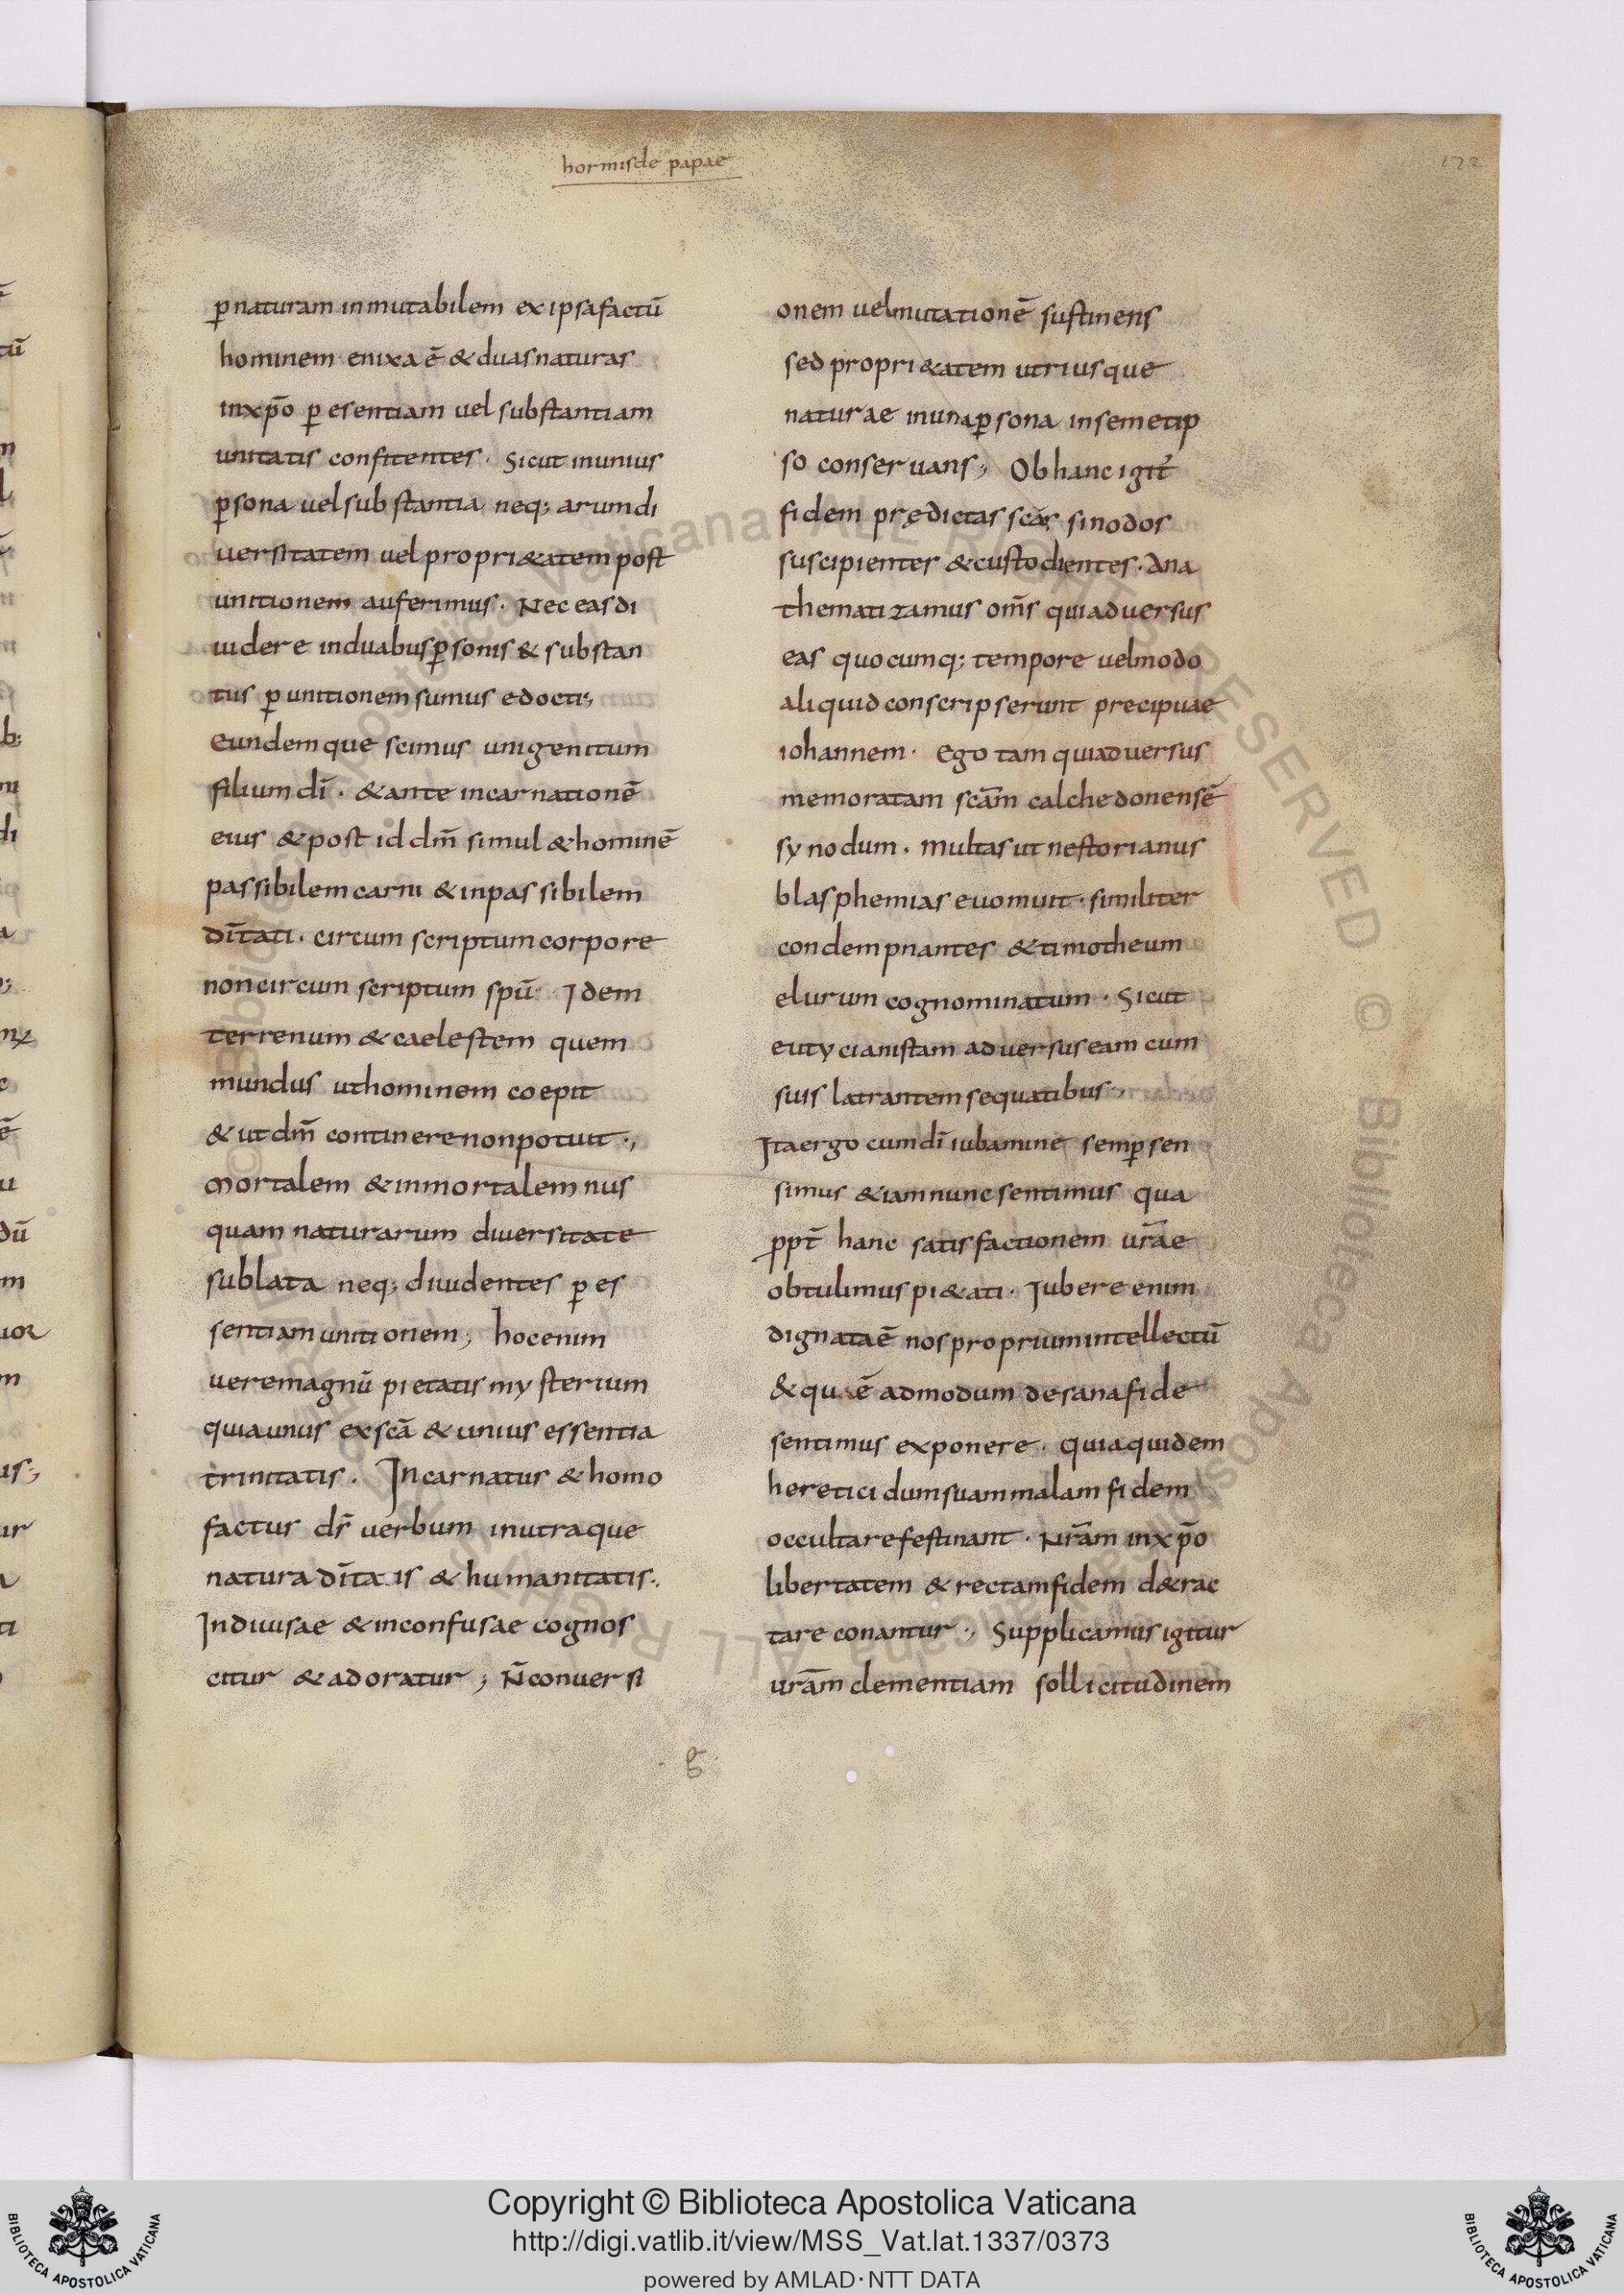 hormisde papae
172
p̲naturam inmutabilem ex ipsa factū
hominem enixa ē & duas naturas
in xp̄o p̲ esentiam uel substantiam
unitatis confitentes · Sicut in unius
p̲sona uel substantia neq; arum di
uersitatem uel propri&atem post
unitionem auferimus · Nec eas di
uidere in duabus p̲sonis & substan
tiis p̲ unitionem sumus edocti;
eundemque scimus unigenitum
filium dī · & ante incarnationē
eius & post id dm̄ simul & hominē
passibilem carni & inpassibilem
dītati · circum scriptum corpore
non circum scriptum spū · Idem
terrenum & caelestem quem
mundus ut hominem coepit
& ut dm̄ continere non potuit ·,
mortalem & inmortalem nus
quam naturarum diuersitate
sublata neq; diuidentes p̲ es
sentiam unitionem; hoc enim
uere magnū pietatis mysterium
quia unus ex scā & unius essentia
trinitatis . Incarnatus & homo
factus ds̄ uerbum in utraque
natura dīta is & humanitatis ·.
Indiuisae & inconfusae cognos
citur & adoratur ; N̄ conuersi
onem uel mutationē sustinens
sed propri&atem utriusque
naturae in una p̲sona in semetip
so conseruans; Ob hanc igit̄
fidem prędictas scās sinodos
suscipientes & custodientes · Ana
thematizamus om̄s qui aduersus
eas quocumq; tempore uel modo
aliquid conscripserunt precipuae
iohannem · ego tam qui aduersus
memoratam scām calchedonensē
synodum . multas ut nestorianus
blasphemias euomuit · similiter
condempnantes & timotheum
elurum cognominatum · Sicut
eutycianistam aduersus eam cum
suis latrantem sequatibus ·,
Ita ergo cum dī iubamine semp̲ sen
simus & iam nunc sentimus qua
p̲pt̄ hanc satisfactionem ur̄ae
obtulimus pi&ati · Jubere enim
dignata ē nos proprium intellectū
& qu ē admodum de sana fide
sentimus exponere · quia quidem
heretici dum suam malam fidem
occultare festinant · Nr̄am in xp̄o
libertatem & rectam fidem d&rac
tare conantur ·, Supplicamus igitur
ur̄am clementiam sollicitudinem
· g ·
© Biblioteca Apostolica Vaticana ALL RIGHTS RESERVED © Biblioteca Apostolica Vaticana ALL RIGHTS RESERVED
Copyright © Biblioteca Apostolica Vaticana
http://digi.vatlib.it/view/MSS_Vat.lat.1337/0373
powered by AMLAD·NTT DATA
BIBLIOTECA APOSTOLICA VATICANA
BIBLIOTECA APOSTOLICA VATICANA